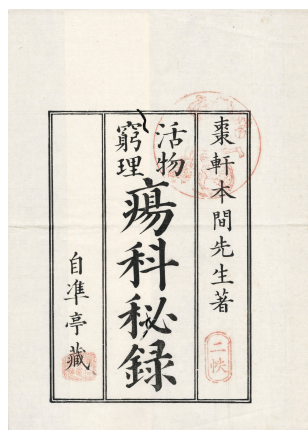 棗軒本間先生著
活物
窮理
瘍科秘録
自準亭藏
二帙